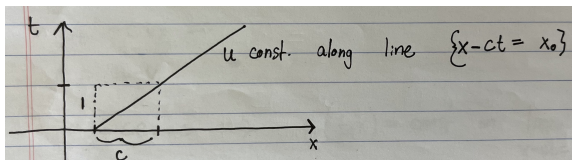 t
u const. along line {x-ct = x₀}
1
c
x